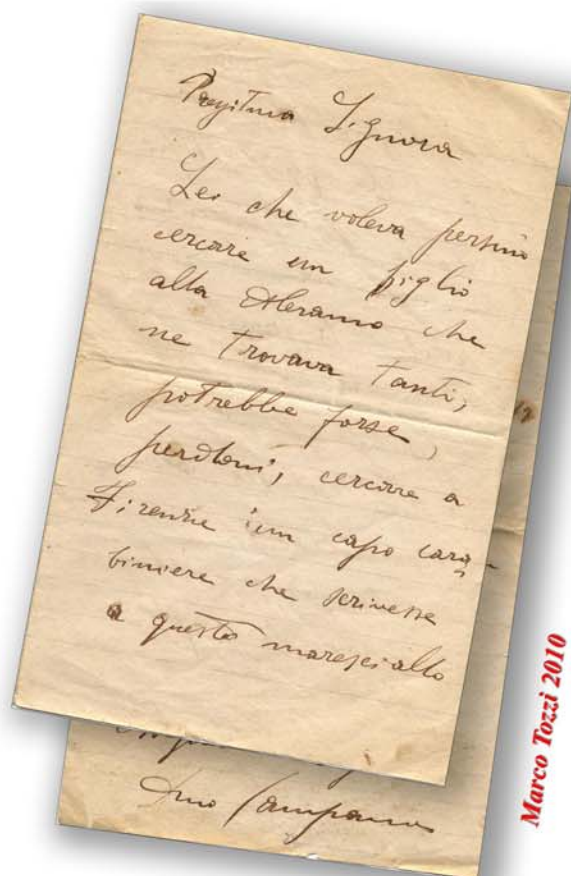 Pregitma Signora
Lei che voleva persino
cercare un figlio
alla Aleramo che
ne trovava tanti,
potrebbe forse,
perdoni, cercare a
Firenze un capo cara-
biniere che scrivesse
a questo maresciallo
Dino Campana
Marco Tozzi 2010